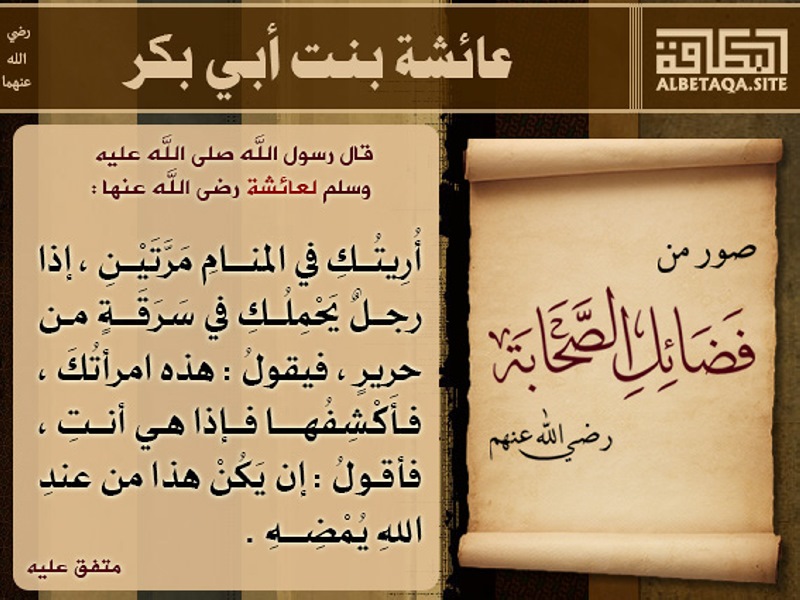 عائشة بنت أبي بكر
رضي
الله
عنهما
البطاقة
ALBETAQA.SITE
صور من
فَضَائِلِ الصَّحَابَة
رضي الله عنهم
قال رسول اللَّه صلى اللَّه عليه
وسلم لعائشة رضى اللَّه عنها :
أُرِيتُكِ في المنامِ مَرَّتَيْنِ ، إذا
رجلٌ يَحْمِلُكِ في سَرَقَةٍ من
حريرٍ ، فيقولُ : هذه امرأتُكَ ،
فأَكْشِفُها فإذا هي أنتِ ،
فأقولُ : إن يَكُنْ هذا من عندِ
اللهِ يُمْضِهِ .
متفق عليه